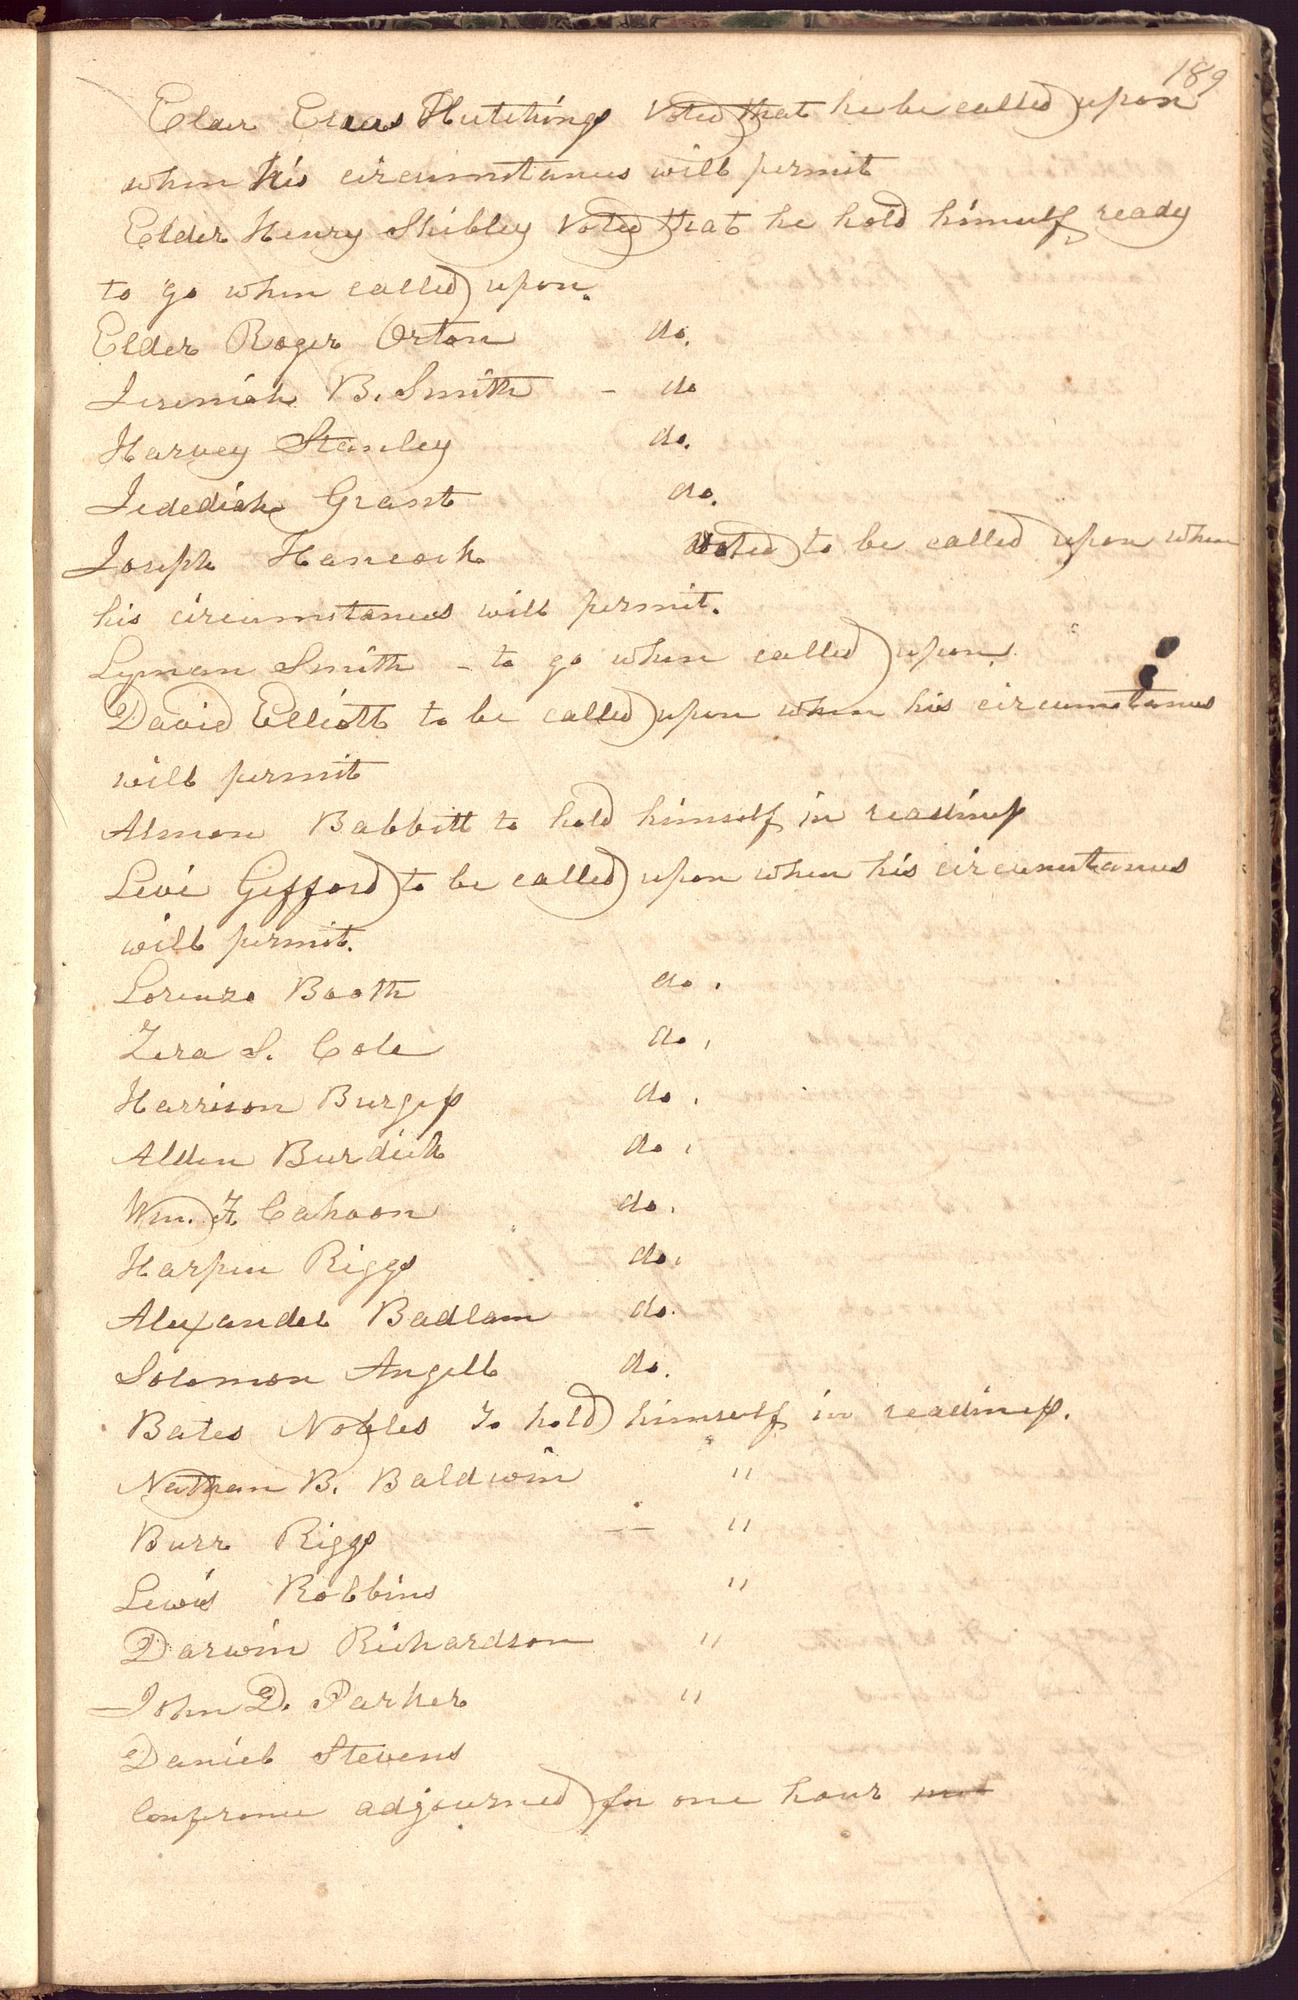 189
Elder Elias Hutchings Voted that he be called upon
when his circumstances will permit
Elder Henry Shibley Voted that he hold himself ready
to go when called upon.
Elder Roger Orton do.
Jeremiah B. Smith - do
Harvey Stanley do.
Jedediah Grant do.
Joseph Hancock Voted to be called upon when
his circumstances will permit.
Lyman Smith - to go when called upon.
David Elliott to be called upon when his circumstances
will permit
Almon Babbitt to hold himself in readiness
Levi Gifford to be called upon when his circumstances
will permit.
Lorenzo Booth do.
Zera S. Cole do.
Harrison Burgess do.
Alden Burdick do.
Wm. F. Cahoon do.
Harpin Riggs do.
Alexander Badlam do.
Solomon Angell do.
Bates Nobles to hold himself in readiness.
Nathan B. Baldwin "
Burr Riggs — "
Lewis Robbins "
Darwin Richardson "
John D. Parker "
Daniel Stevens
Conference adjourned for one hour